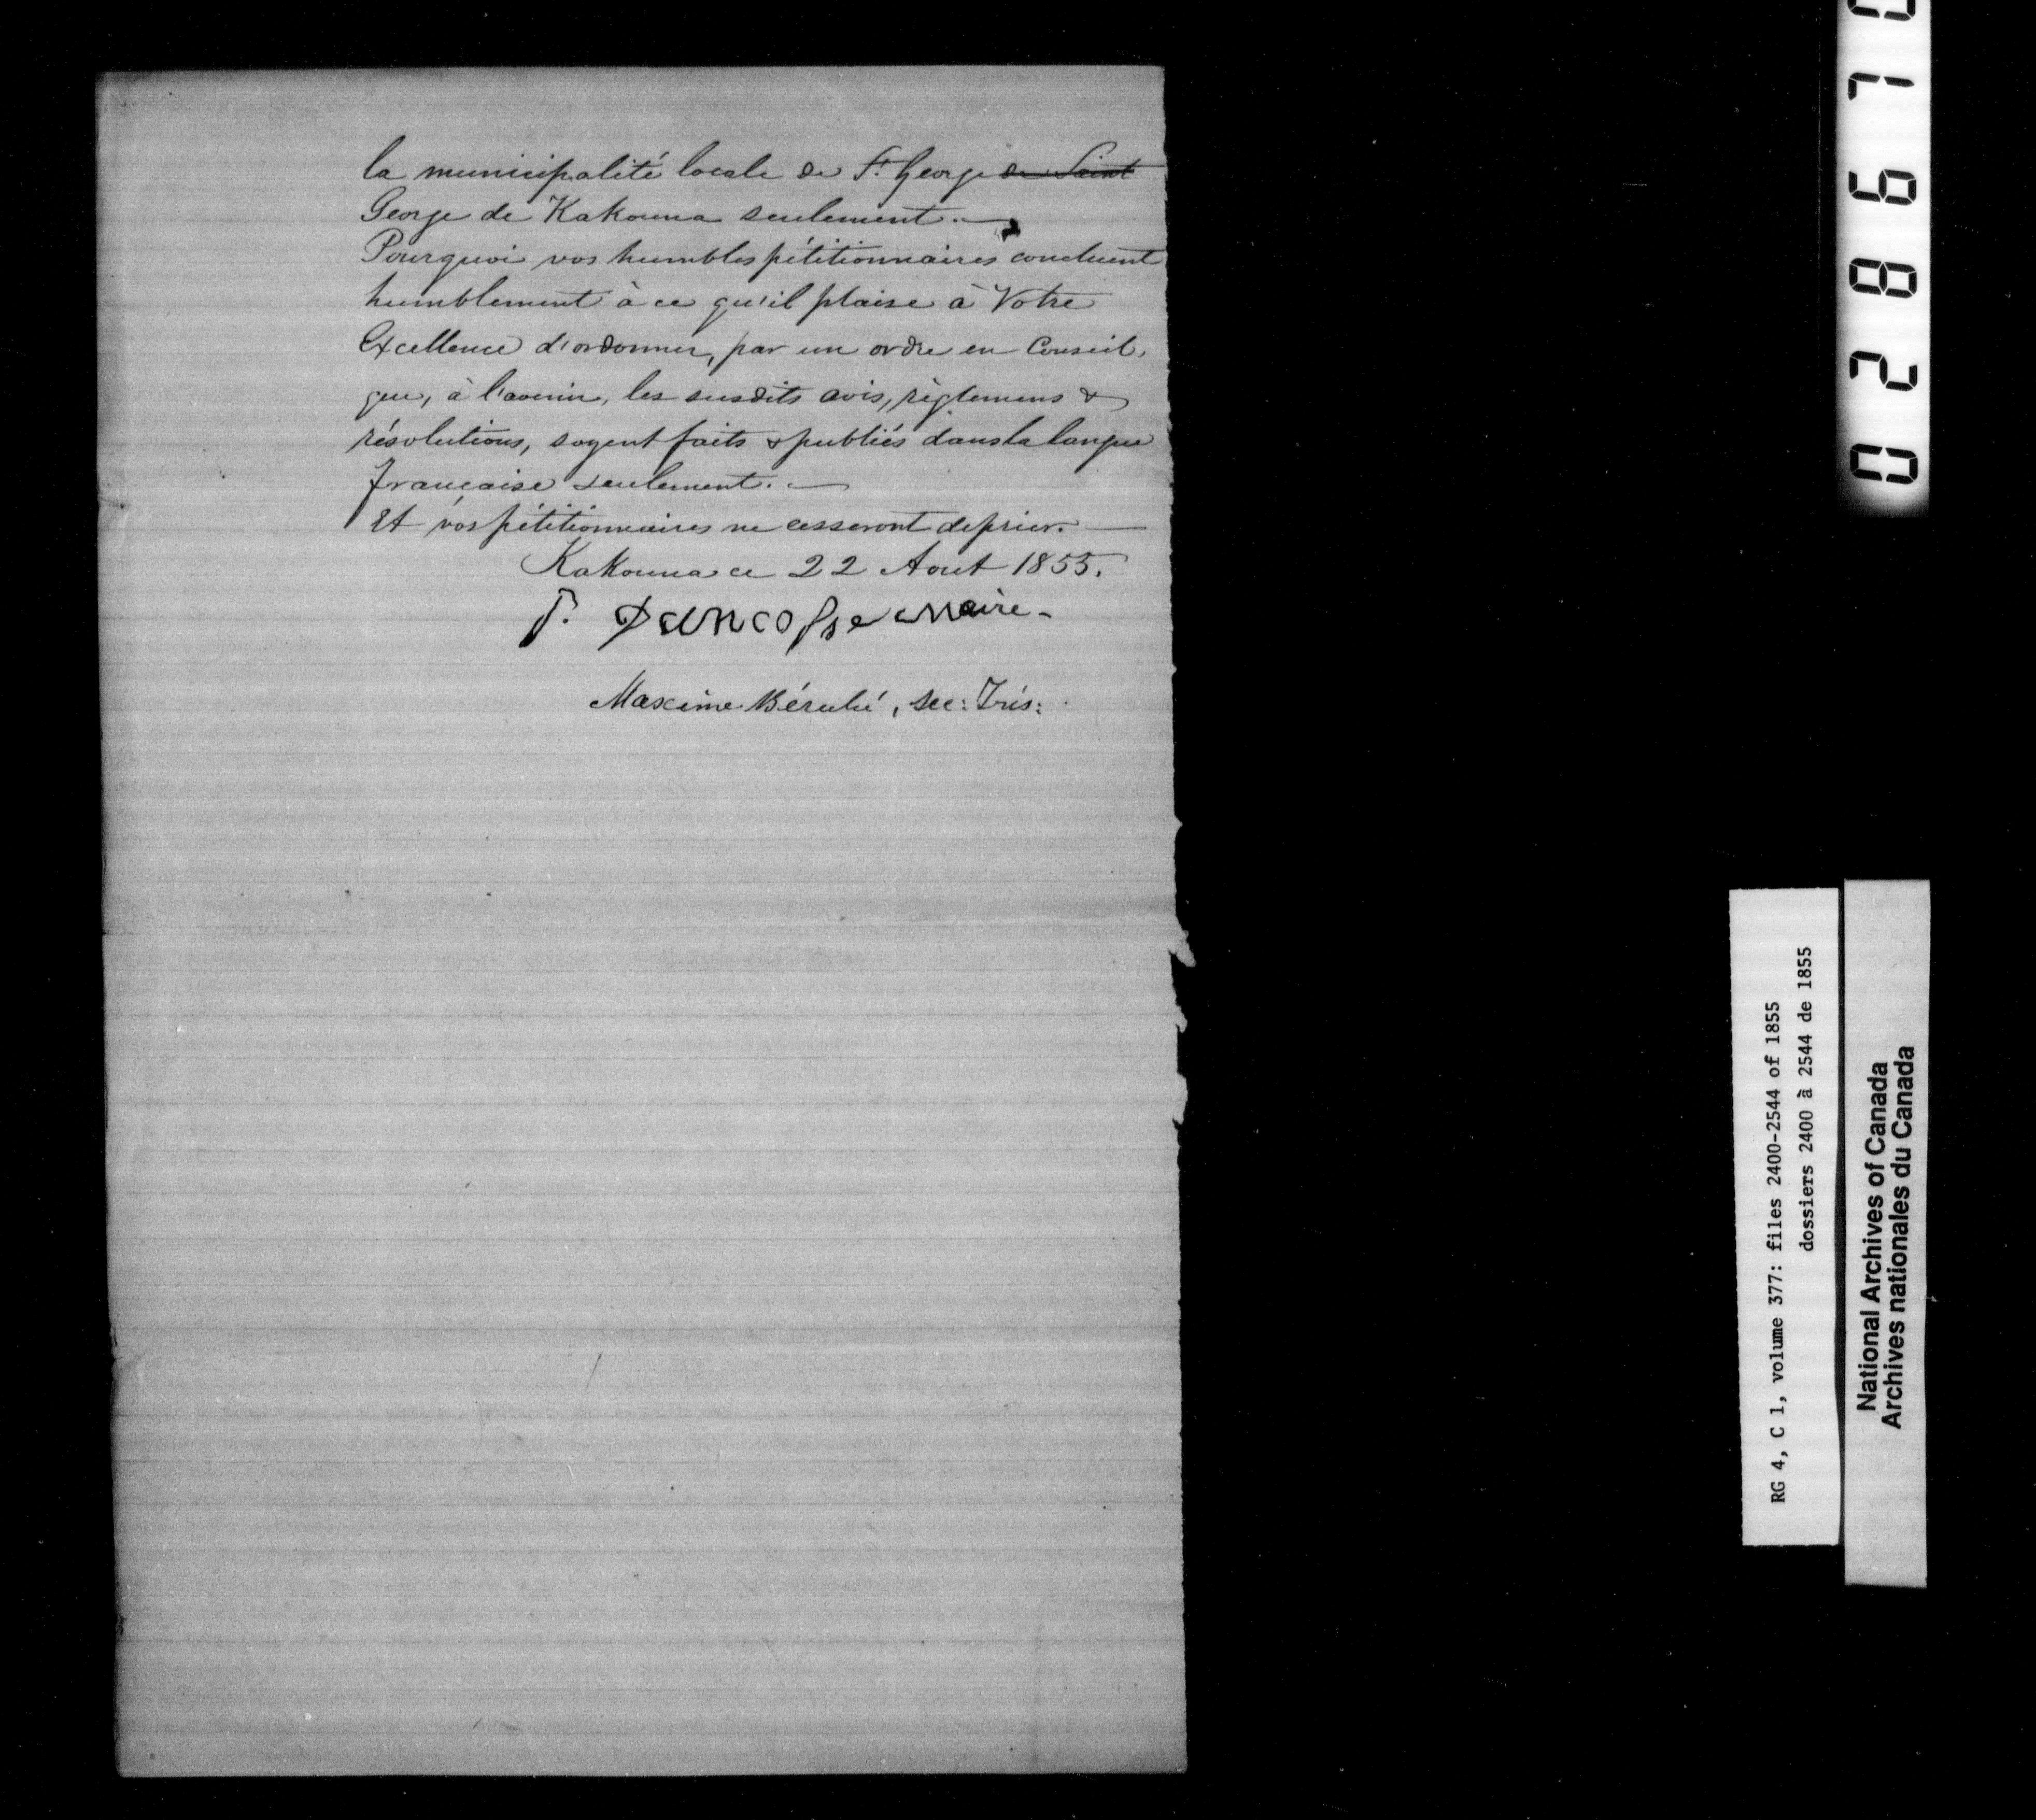 la municipalité locale de St. George ~~de Saint~~
George de Kakouna seulement. —
Pourquoi vos humbles pétitionnaires concluent
humblement à ce qu'il plaise à Votre
Excellence d'ordonner, par un ordre en Conseil,
que, à l'avenir, les susdits avis, règlemens &
résolutions, soyent faits & publiés dans la langue
française seulement. —
Et vos pétitionnaires ne cesseront de prier. —
Kakouna ce 22 Aout 1855.
maire -
Maxime Bérubé, sec: Trés:
028670
RG 4, C 1, volume 377: files 2400-2544 of 1855
dossiers 2400 à 2544 de 1855
National Archives of Canada
Archives nationales du Canada